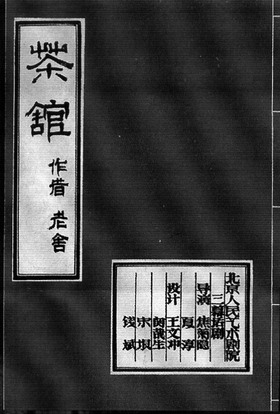 茶館
作者 老舍
北京人民艺术剧院
三幕话剧
导演 焦菊隐
夏淳
设计 王文冲
宋垠